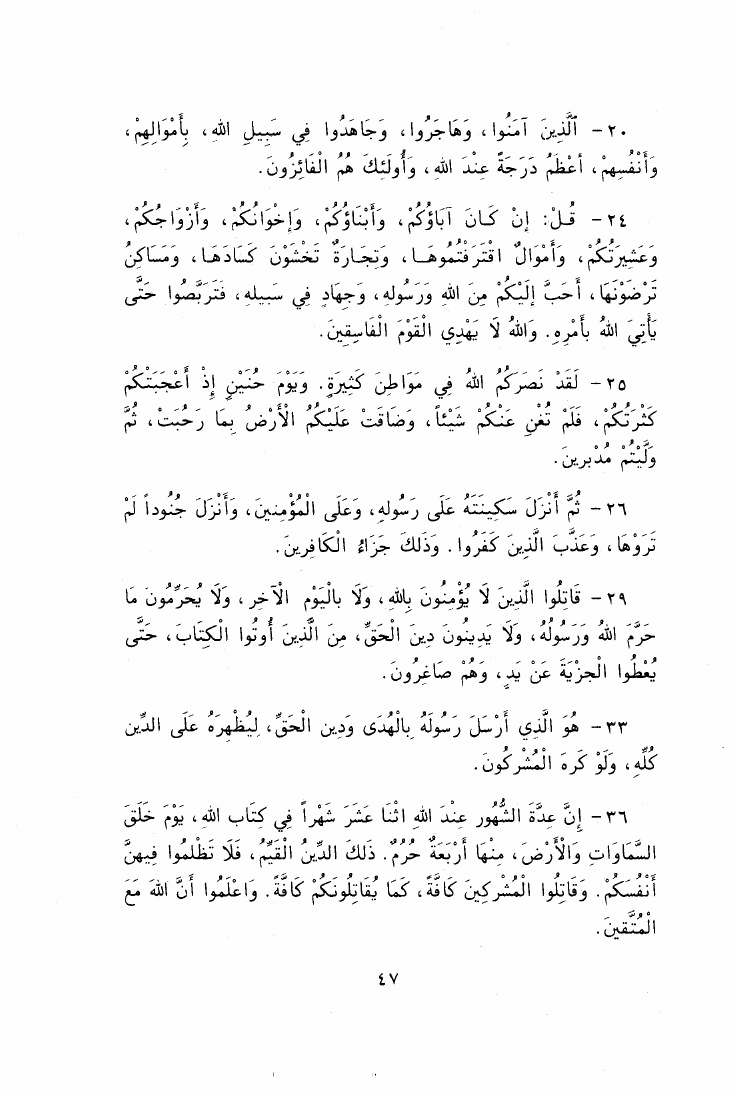 ٢٠ - ٱلَّذِينَ آمَنُوا، وَهَاجَرُوا، وَجَاهَدُوا فِي سَبِيلِ اللهِ، بِأَمْوَالِهِمْ،
وَأَنْفُسِهِمْ، أَعْظَمُ دَرَجَةً عِنْدَ اللهِ، وَأُولَئِكَ هُمُ الْفَائِزُونَ.
٢٤ - قُلْ: إِنْ كَانَ آبَاؤُكُمْ، وَأَبْنَاؤُكُمْ، وَإِخْوَانُكُمْ، وَأَزْوَاجُكُمْ،
وَعَشِيرَتُكُمْ، وَأَمْوَالٌ اقْتَرَفْتُمُوهَا، وَتِجَارَةٌ تَخْشَوْنَ كَسَادَهَا، وَمَسَاكِنُ
تَرْضَوْنَهَا، أَحَبَّ إِلَيْكُمْ مِنَ اللهِ وَرَسُولِهِ، وَجِهَادٍ فِي سَبِيلِهِ، فَتَرَبَّصُوا حَتَّى
يَأْتِيَ اللهُ بِأَمْرِهِ. وَاللهُ لَا يَهْدِي الْقَوْمَ الْفَاسِقِينَ.
٢٥ - لَقَدْ نَصَرَكُمُ اللهُ فِي مَوَاطِنَ كَثِيرَةٍ. وَيَوْمَ حُنَيْنٍ إِذْ أَعْجَبَتْكُمْ
كَثْرَتُكُمْ، فَلَمْ تُغْنِ عَنْكُمْ شَيْئاً، وَضَاقَتْ عَلَيْكُمُ الْأَرْضُ بِمَا رَحُبَتْ، ثُمَّ
وَلَّيْتُمْ مُدْبِرِينَ.
٢٦ - ثُمَّ أَنْزَلَ سَكِينَتَهُ عَلَى رَسُولِهِ، وَعَلَى الْمُؤْمِنِينَ، وَأَنْزَلَ جُنُوداً لَمْ
تَرَوْهَا، وَعَذَّبَ الَّذِينَ كَفَرُوا. وَذَلِكَ جَزَاءُ الْكَافِرِينَ.
٢٩ - قَاتِلُوا الَّذِينَ لَا يُؤْمِنُونَ بِاللهِ، وَلَا بِالْيَوْمِ الْآخِرِ، وَلَا يُحَرِّمُونَ مَا
حَرَّمَ اللهُ وَرَسُولُهُ، وَلَا يَدِينُونَ دِينَ الْحَقِّ، مِنَ الَّذِينَ أُوتُوا الْكِتَابَ، حَتَّى
يُعْطُوا الْجِزْيَةَ عَنْ يَدٍ، وَهُمْ صَاغِرُونَ.
٣٣ - هُوَ الَّذِي أَرْسَلَ رَسُولَهُ بِالْهُدَى وَدِينِ الْحَقِّ، لِيُظْهِرَهُ عَلَى الدِّينِ
كُلِّهِ، وَلَوْ كَرِهَ الْمُشْرِكُونَ.
٣٦ - إِنَّ عِدَّةَ الشُّهُورِ عِنْدَ اللهِ اثْنَا عَشَرَ شَهْراً فِي كِتَابِ اللهِ، يَوْمَ خَلَقَ
السَّمَاوَاتِ وَالْأَرْضَ، مِنْهَا أَرْبَعَةٌ حُرُمٌ. ذَلِكَ الدِّينُ الْقَيِّمُ، فَلَا تَظْلِمُوا فِيهِنَّ
أَنْفُسَكُمْ. وَقَاتِلُوا الْمُشْرِكِينَ كَافَّةً، كَمَا يُقَاتِلُونَكُمْ كَافَّةً. وَاعْلَمُوا أَنَّ اللهَ مَعَ
الْمُتَّقِينَ.
٤٧